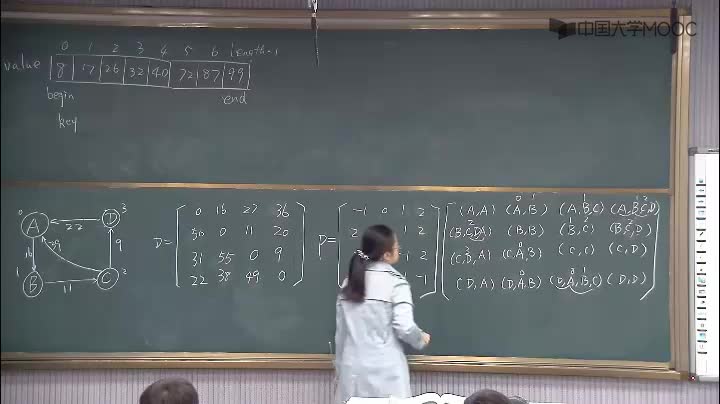 中国大学MOOC
0 1 2 3 4 5 6 length-1
value 8 17 26 32 40 72 87 99
begin end
key
A 0 22 D 3
16 29 9
1 B 11 C 2
D=
0 15 27 36
30 0 11 20
31 55 0 9
22 38 49 0
P=
-1 0 1 2
2 1 2
1 2
1 -1
(A,A) (A,B) (A,B,C) (A,B,C,D)
(B,C,D,A) (B,B) (B,C) (B,C,D)
(C,D,A) (C,A,B) (C,C) (C,D)
(D,A) (D,A,B) (D,A,B,C) (D,D)